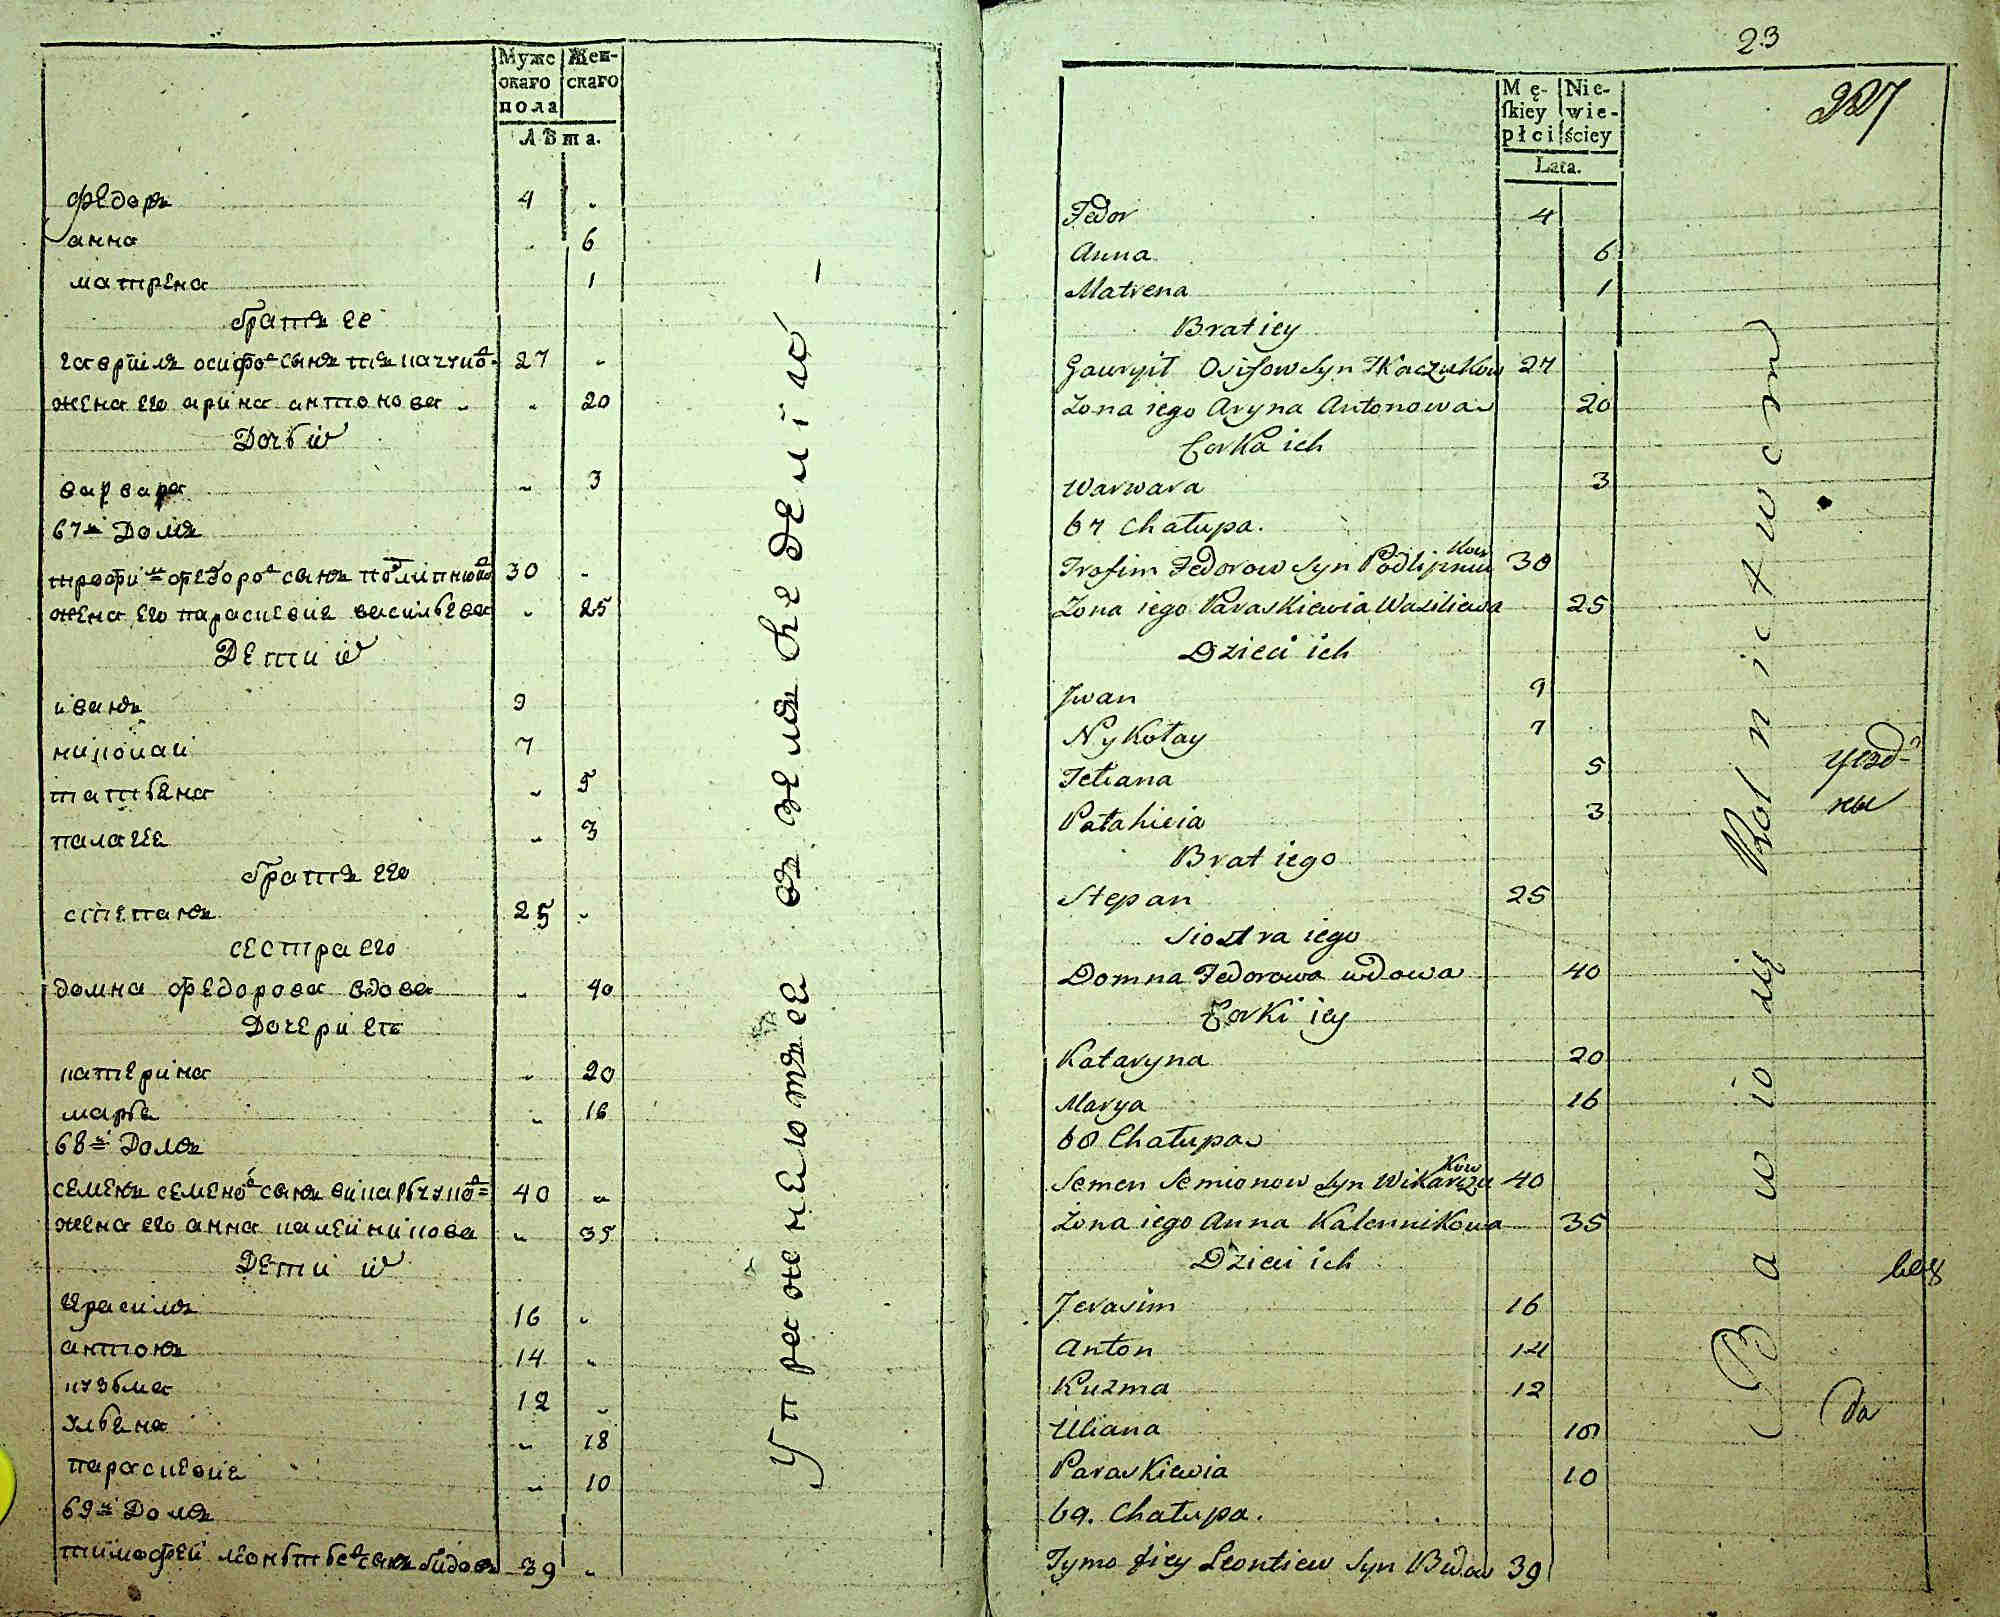 Муже
скаго
пола
Жен-
скаго
Лѣта.
федоръ 4 "
анна " 6
матрена 1
братъ ее
гаврiилъ осифо&#x432; сынъ ткачуко&#x432; 27 "
жена его арина антонова " 20
Дочь iи&#x445;
варвара " 3
67й Домъ
трофи&#x43C; федоро&#x432; сынъ подлипнюко&#x432; 30 "
жена его параскевiя васильева " 25
Дети и&#x445;
иванъ 9
николай 7
татьяна " 5
палагея " 3
братъ его
степанъ 25 "
сестра его
домна федорова вдова " 40
Дочери ее
катерина " 20
марья " 16
68й Домъ
семенъ семено&#x432; сынъ викарчуко&#x432; 40 "
жена его анна калейникова " 35
Дети и&#x445;
ерасимъ 16 "
антонъ 14 "
кузьма 12 "
ульяна " 18
параскевiя " 10
69й Домъ
тимофей леонтьевъ сынъ бидовъ 39 "
Упражнеются въ земледелiю
23
Mę-
skiey
płci
Nie-
wie-
ściey
Lata.
Fedor 4
Anna 6
Matrena 1
Brat iey
Gawryił Osifow Syn Tkaczukow 27
Zona iego Aryna Antonowa 20
Corka ich
Warwara 3
67 Chałupa.
Trofim Fedorow Syn Podlipniukow 30
Zona iego Paraskiewia Wasiliewa 25
Dzieci ich
Jwan 9
Nykołay 7
Tetiana 5
Pałahieia 3
Brat iego
Stepan 25
Siostra iego
Domna Fedorowa wdowa 40
Corki iey
Kataryna 20
Marya 16
68 Chałupa
Semen Semionow Syn Wikarczukow 40
Zona iego Anna Kalennikowa 35
Dzieci ich
Jerasim 16
Anton 14
Kuzma 12
Uliana 18
Paraskiewia 10
69. Chałupa.
Tymofiey Leontiew Syn Bidow 39
Bawio się Rolnictwem